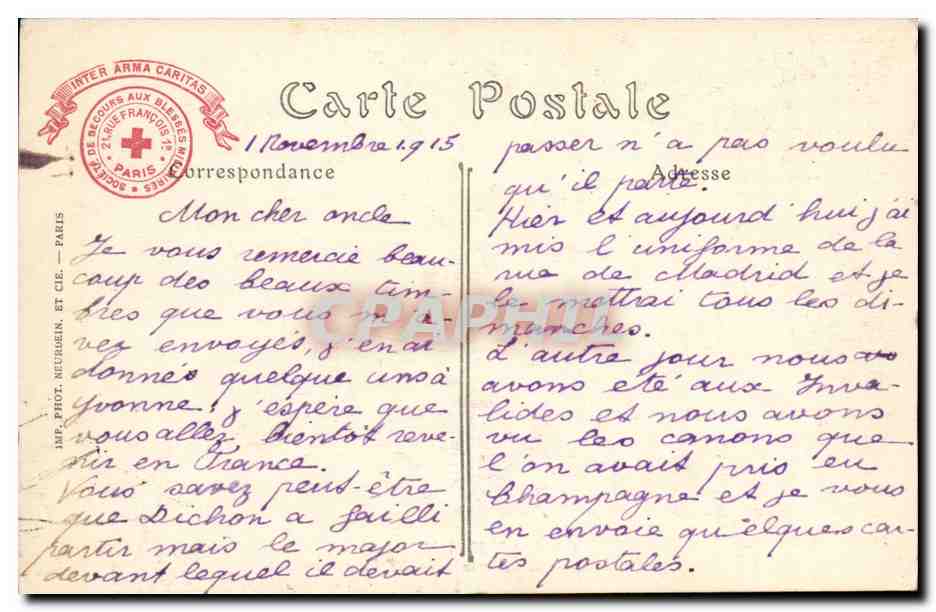 INTER ARMA CARITAS
SOCIÉTÉ DE SECOURS AUX BLESSÉS MILITAIRES
21, RUE FRANÇOIS 1er
PARIS
Carte Postale
1 Novembre 1915
Correspondance
Mon cher oncle
Je vous remercie beau-
coup des beaux tim-
bres que vous m'a-
vez envoyés, j'en ai
donnés quelque uns à
Yvonne; j'espère que
vous allez bientôt reve-
nir en France.
Vous savez peut-être
que Dichon a failli
partir mais le major
devant lequel il devait
passer n'a pas voulu
Adresse
qu'il parte.
Hier et aujourd'hui j'ai
mis l'uniforme de la
rue de Madrid et je
le mettrai tous les di-
manches.
L'autre jour nous
avons été aux Inva-
lides et nous avons
vu les canons que
l'on avait pris en
Champagne et je vous
en envoie quelques car-
tes postales.
IMP. PHOT. NEURDEIN. ET CIE. — PARIS
CPARHU